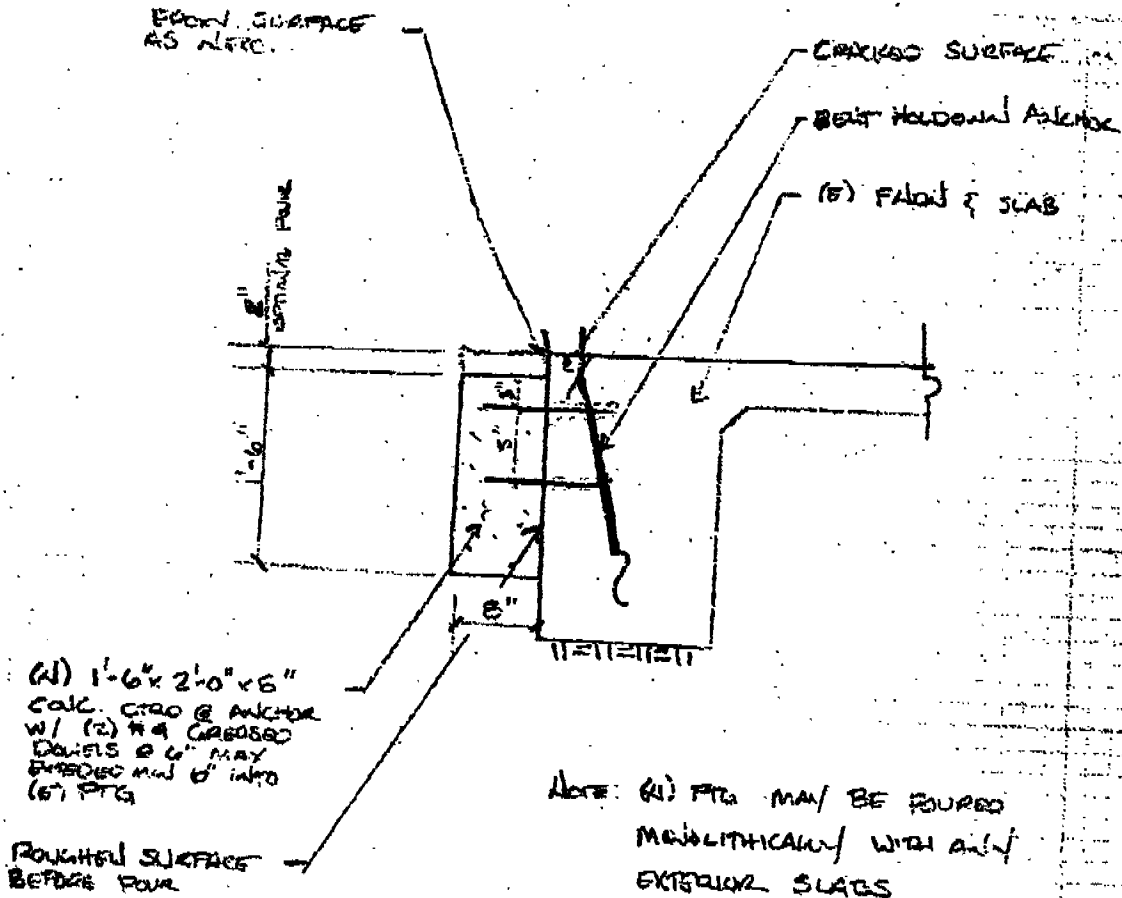 EPOXY SURFACE
AS NEEC.
CRACKED SURFACE
BENT HOLDOWN ANCHOR
(E) FNDN & SLAB
2"
POUR
1'-6"
3"
5"
8"
(N) 1'-6" x 2'-0" x 8"
CONC. CTRD @ ANCHOR
W/ (2) #4 GREASED
DOWELS @ 6" MAY
EMBEDED MIN 6" INTO
(E) FTG
ROUGHEN SURFACE
BEFORE POUR
NOTE: (N) FTG MAY BE POURED
MONOLITHICALLY WITH ANY
EXTERIOR SLABS